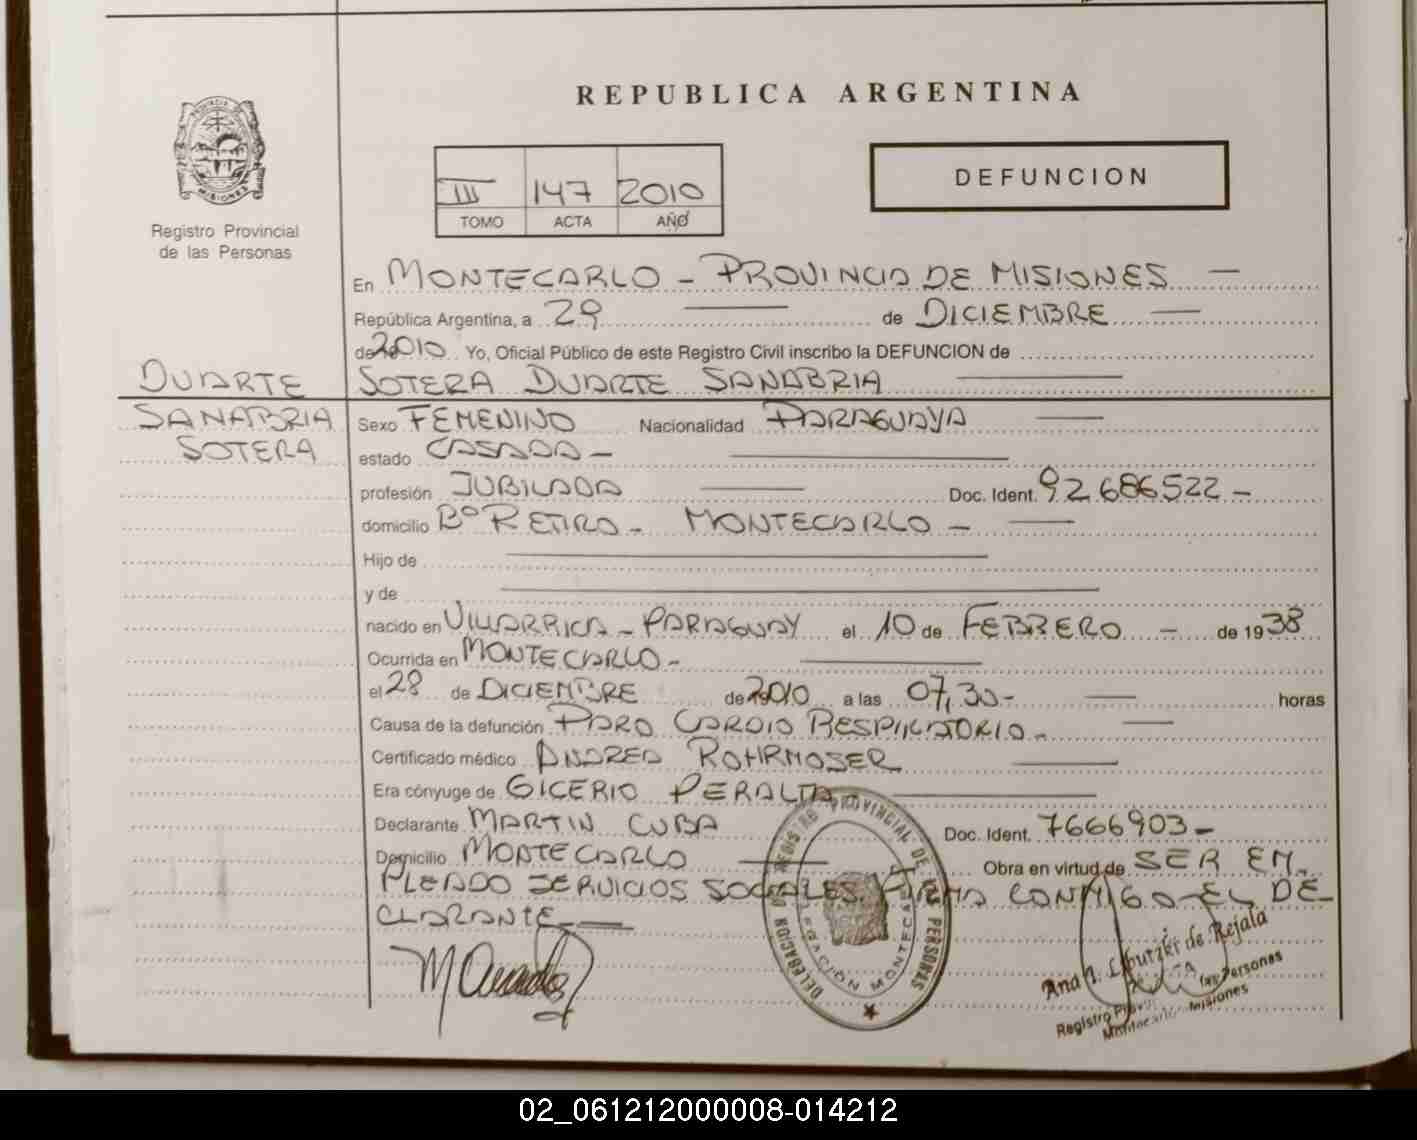 REPUBLICA ARGENTINA
PROVINCIA DE
MISIONES
Registro Provincial
de las Personas
III 147 2010
TOMO ACTA AÑO
DEFUNCION
En MONTECARLO - PROVINCIA DE MISIONES —
República Argentina, a 29 — de DICIEMBRE —
de 2010 Yo, Oficial Público de este Registro Civil inscribo la DEFUNCION de
DUARTE
SANABRIA
SOTERA
SOTERA DUARTE SANABRIA —
Sexo FEMENINO Nacionalidad PARAGUAYA —
estado CASADA - —
profesión JUBILADA — Doc. Ident. 92686522 -
domicilio Bº RETIRO - MONTECARLO - —
Hijo de —
y de —
nacido en VILLARRICA - PARAGUAY el 10 de FEBRERO - de 1938
Ocurrida en MONTECARLO - —
el 28 de DICIEMBRE de 2010 a las 07,30 - — horas
Causa de la defunción PARO CARDIO RESPIRATORIO - —
Certificado médico ANDREA ROHRMOSER —
Era cónyuge de GICERIO PERALTA —
Declarante MARTIN CUBA Doc. Ident. 7666903 -
Domicilio MONTECARLO — Obra en virtud de SER EM-
PLEADO SERVICIOS SOCIALES. FIRMA CONMIGO EL DE-
CLARANTE - —
DELEGACION DE REGISTRO PROVINCIAL DE LAS PERSONAS
DELEGACION MONTECARLO
de Rejala
las Personas
Misiones
02_061212000008-014212